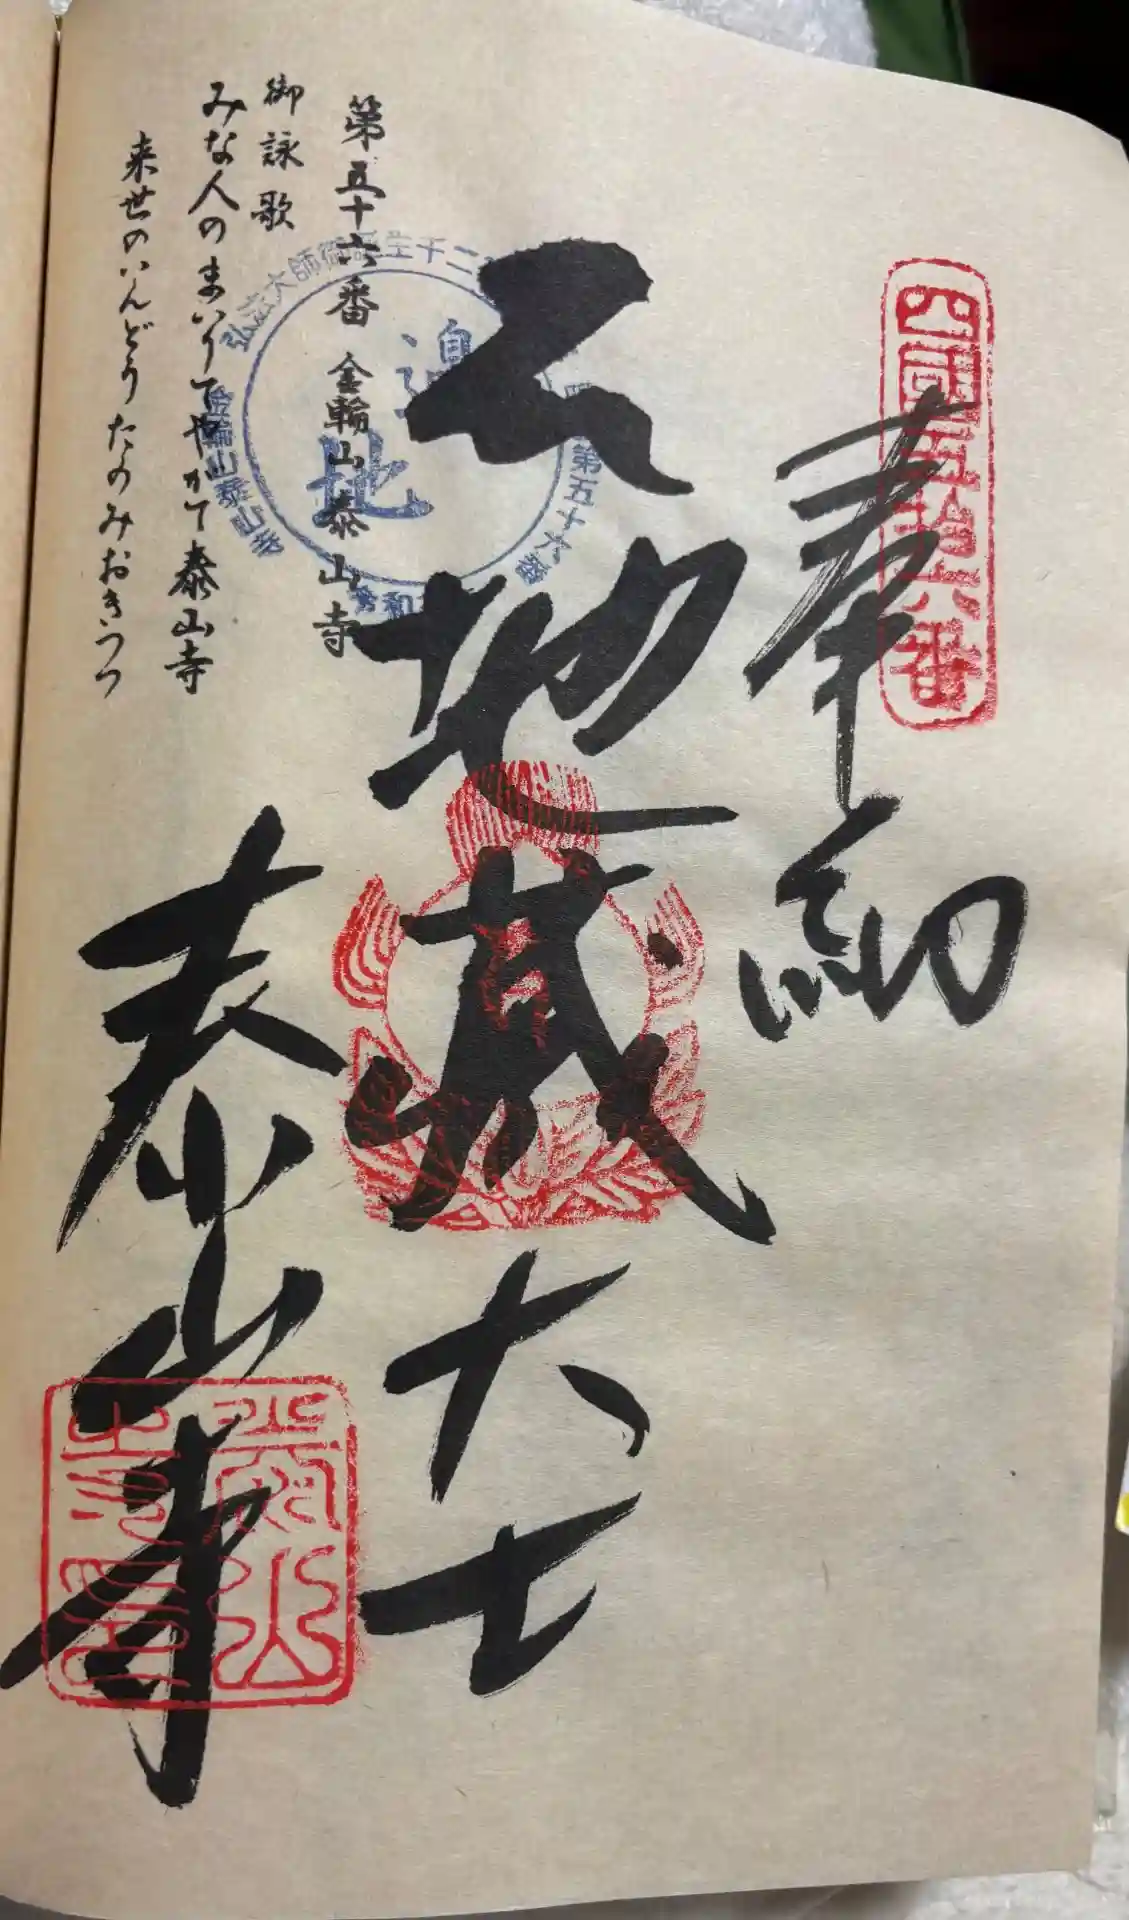 四國五拾六番
奉納
地蔵大士
泰山寺
第五十六番 金輪山 泰山寺
御詠歌
みな人のまいりてやがて泰山寺
来世のいんどうたのみおきつつ
弘法大師御誕生千二
第五十六番
金輪山泰山寺
令和
地
泰山寺印